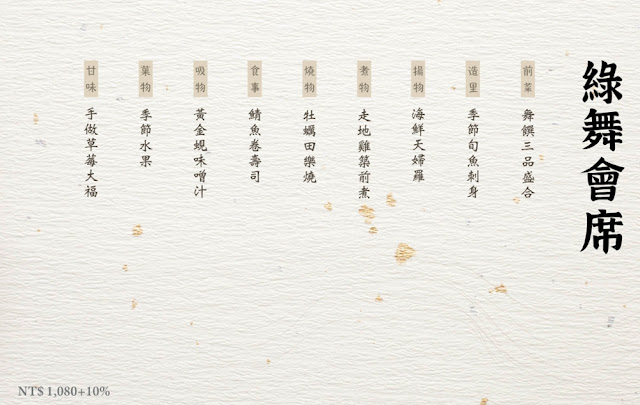 綠舞會席
前菜
舞饌三品盛合
造里
季節旬魚刺身
揚物
海鮮天婦羅
煮物
走地雞築前煮
燒物
牡蠣田樂燒
食事
鯖魚卷壽司
吸物
黃金蜆味噌汁
菓物
季節水果
甘味
手做草莓大福
NT$ 1,080+10%